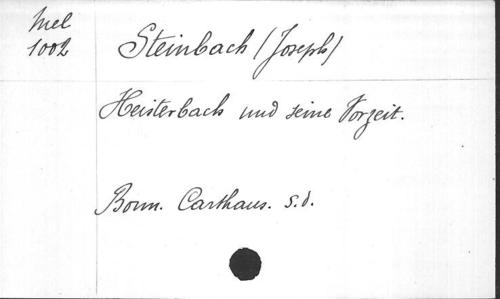 Mel
1002
Steinbach (Joseph)
Heisterbach und seine Vorzeit.
Bonn. Carthaus. s.d.